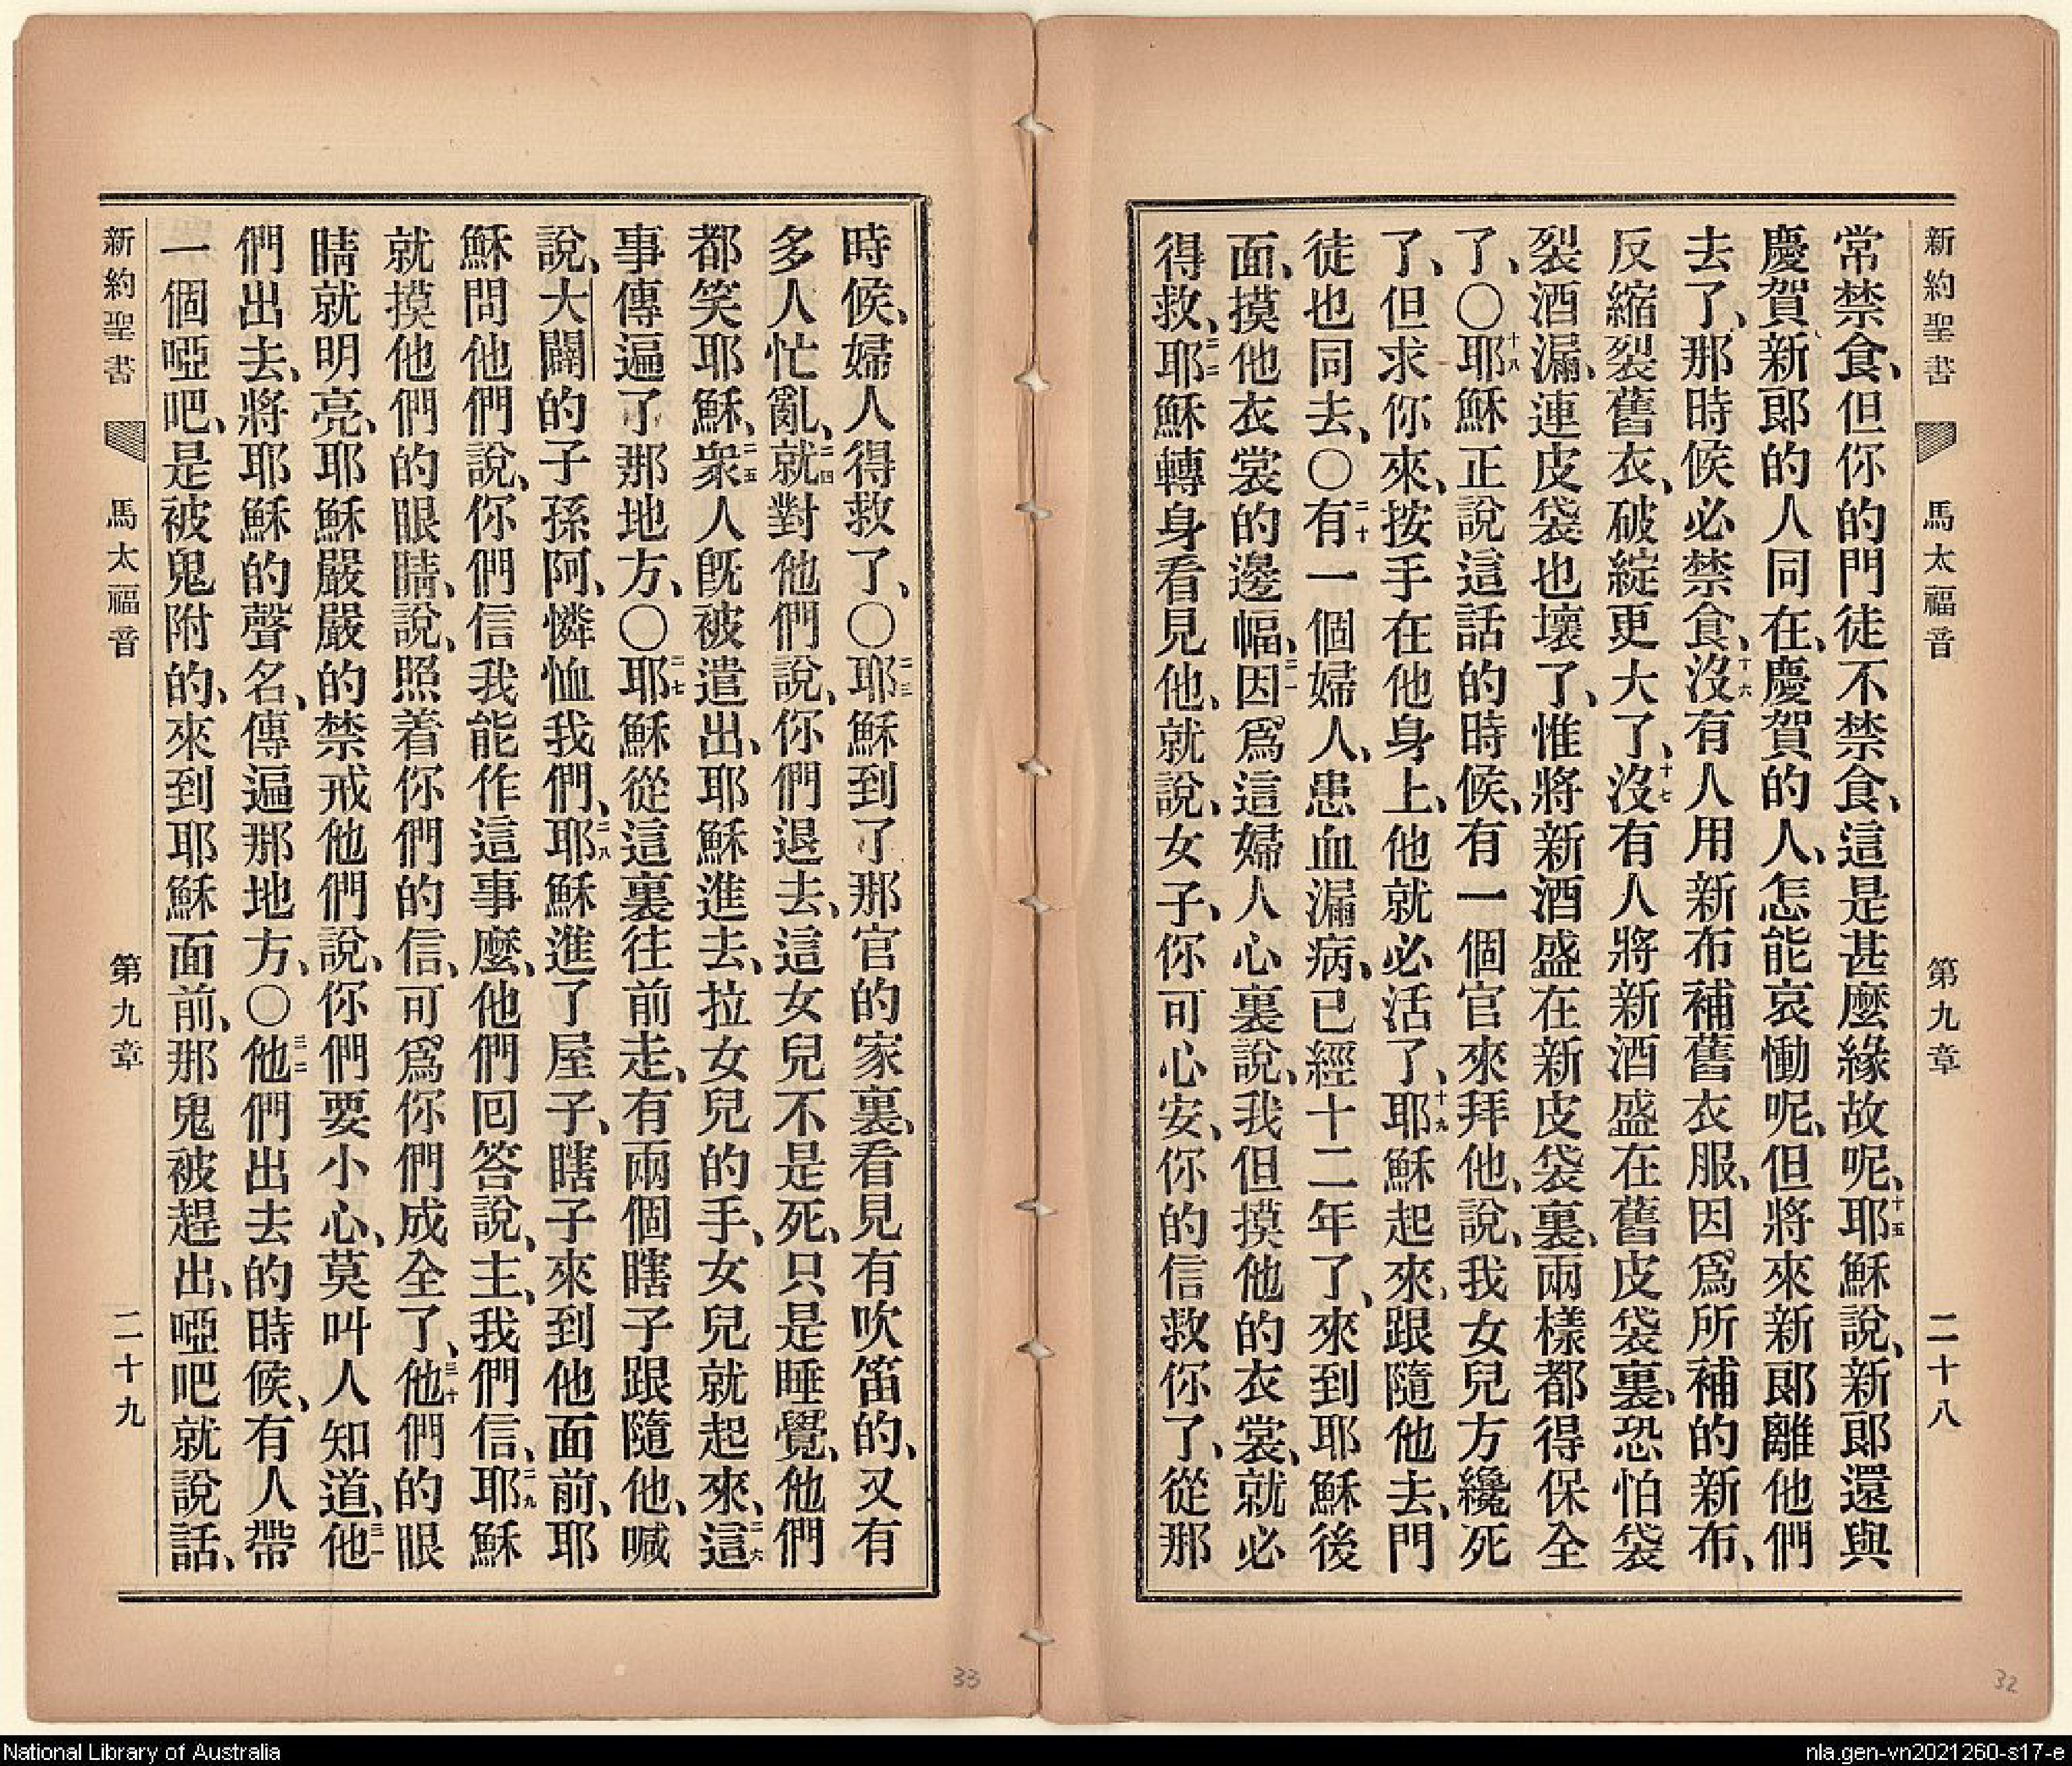 新約聖書 馬太福音 第九章 二十八
常禁食、但你的門徒不禁食、這是甚麼緣故呢、十五耶穌說、新郎還與
慶賀新郎的人同在、慶賀的人、怎能哀慟呢、但將來新郎離他們
去了、那時候必禁食、十六沒有人用新布補舊衣服、因爲所補的新布、
反縮裂舊衣、破綻更大了、十七沒有人將新酒盛在舊皮袋裏、恐怕袋
裂酒漏、連皮袋也壞了、惟將新酒盛在新皮袋裏、兩樣都得保全
了、○十八耶穌正說這話的時候、有一個官來拜他、說、我女兒方纔死
了、但求你來、按手在他身上、他就必活了、十九耶穌起來、跟隨他去、門
徒也同去、○二十有一個婦人、患血漏病、已經十二年了、來到耶穌後
面、摸他衣裳的邊幅、二一因爲這婦人心裏說、我但摸他的衣裳、就必
得救、二二耶穌轉身看見他、就說、女子、你可心安、你的信救你了、從那
時候、婦人得救了、○二三耶穌到了那官的家裏、看見有吹笛的、又有
多人忙亂、二四就對他們說、你們退去、這女兒不是死、只是睡覺、他們
都笑耶穌、二五衆人旣被遣出、耶穌進去、拉女兒的手、女兒就起來、二六這
事傳遍了那地方、○二七耶穌從這裏往前走、有兩個瞎子跟隨他、喊
說、大闢的子孫阿、憐恤我們、二八耶穌進了屋子、瞎子來到他面前、耶
穌問他們說、你們信我能作這事麼、他們回答說、主、我們信、二九耶穌
就摸他們的眼睛、說、照着你們的信、可爲你們成全了、三十他們的眼
睛就明亮、耶穌嚴嚴的禁戒他們說、你們要小心、莫叫人知道、三一他
們出去、將耶穌的聲名、傳遍那地方、○三二他們出去的時候、有人帶
一個啞吧、是被鬼附的、來到耶穌面前、那鬼被趕出、啞吧就說話、
新約聖書 馬太福音 第九章 二十九
33
32
National Library of Australia
nla.gen-vn2021260-s17-e